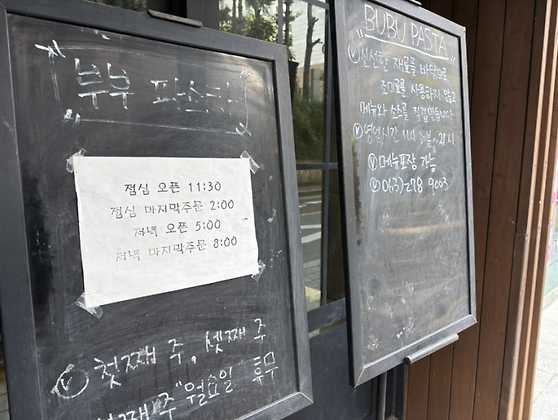 부부 파스타
점심 오픈 11:30
점심 마지막주문 2:00
저녁 오픈 5:00
저녁 마지막주문 8:00
첫째 주, 셋째 주
째 주 "월요일" 휴무
BUBU PASTA
신선한 재료를 바탕으로
조미료를 사용하지 않고
메뉴와 소스를 직접 만듭니다
영업시간 11시 21시
메뉴포장 가능
278 9003